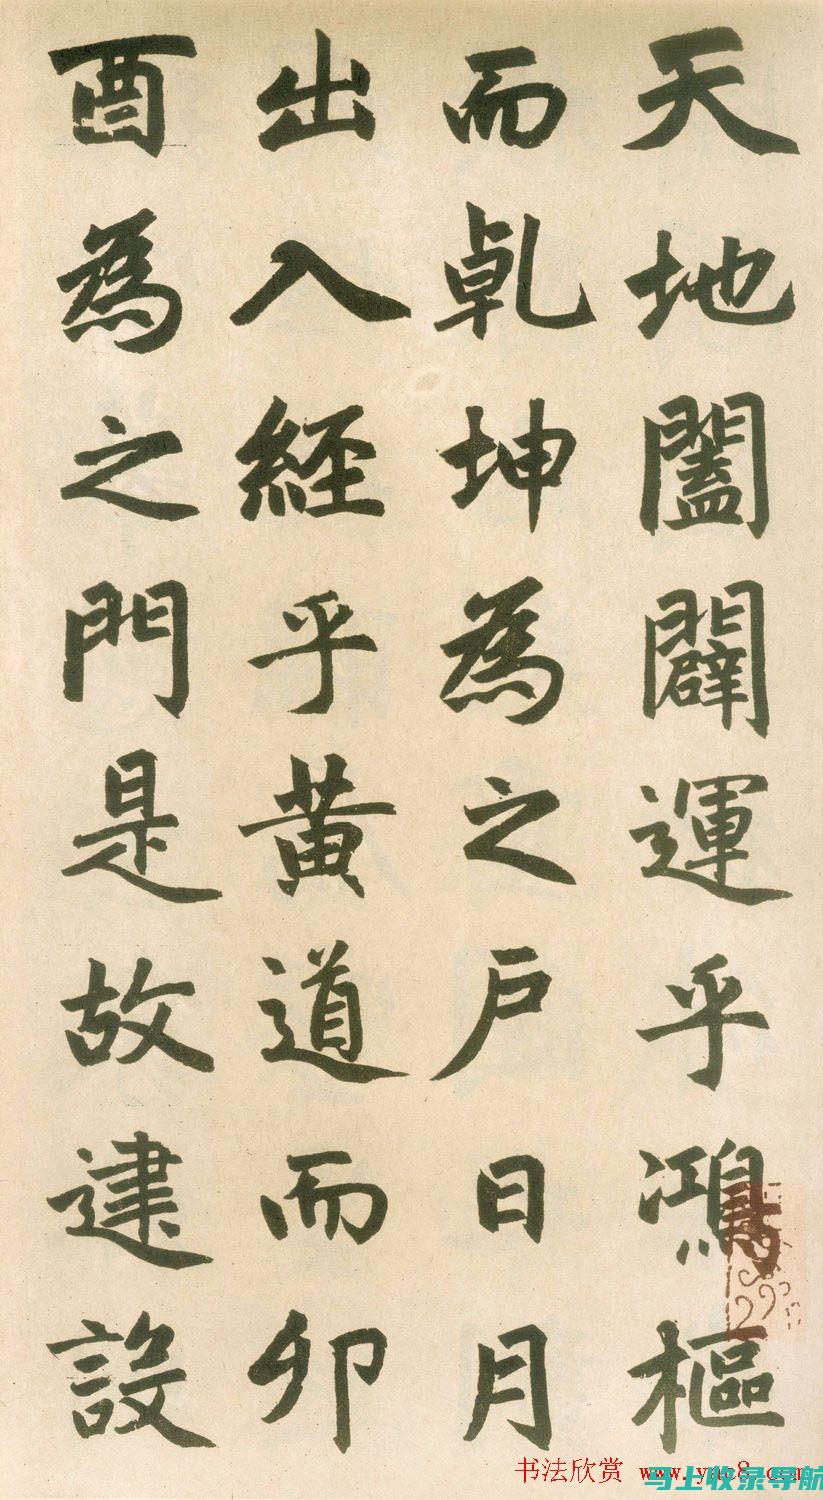 天地闔闢運乎鴻樞
而乹坤為之户日月
出入經乎黄道而卯
酉為之門是故建設
书法欣赏 www.yac8.com
马上收录导航